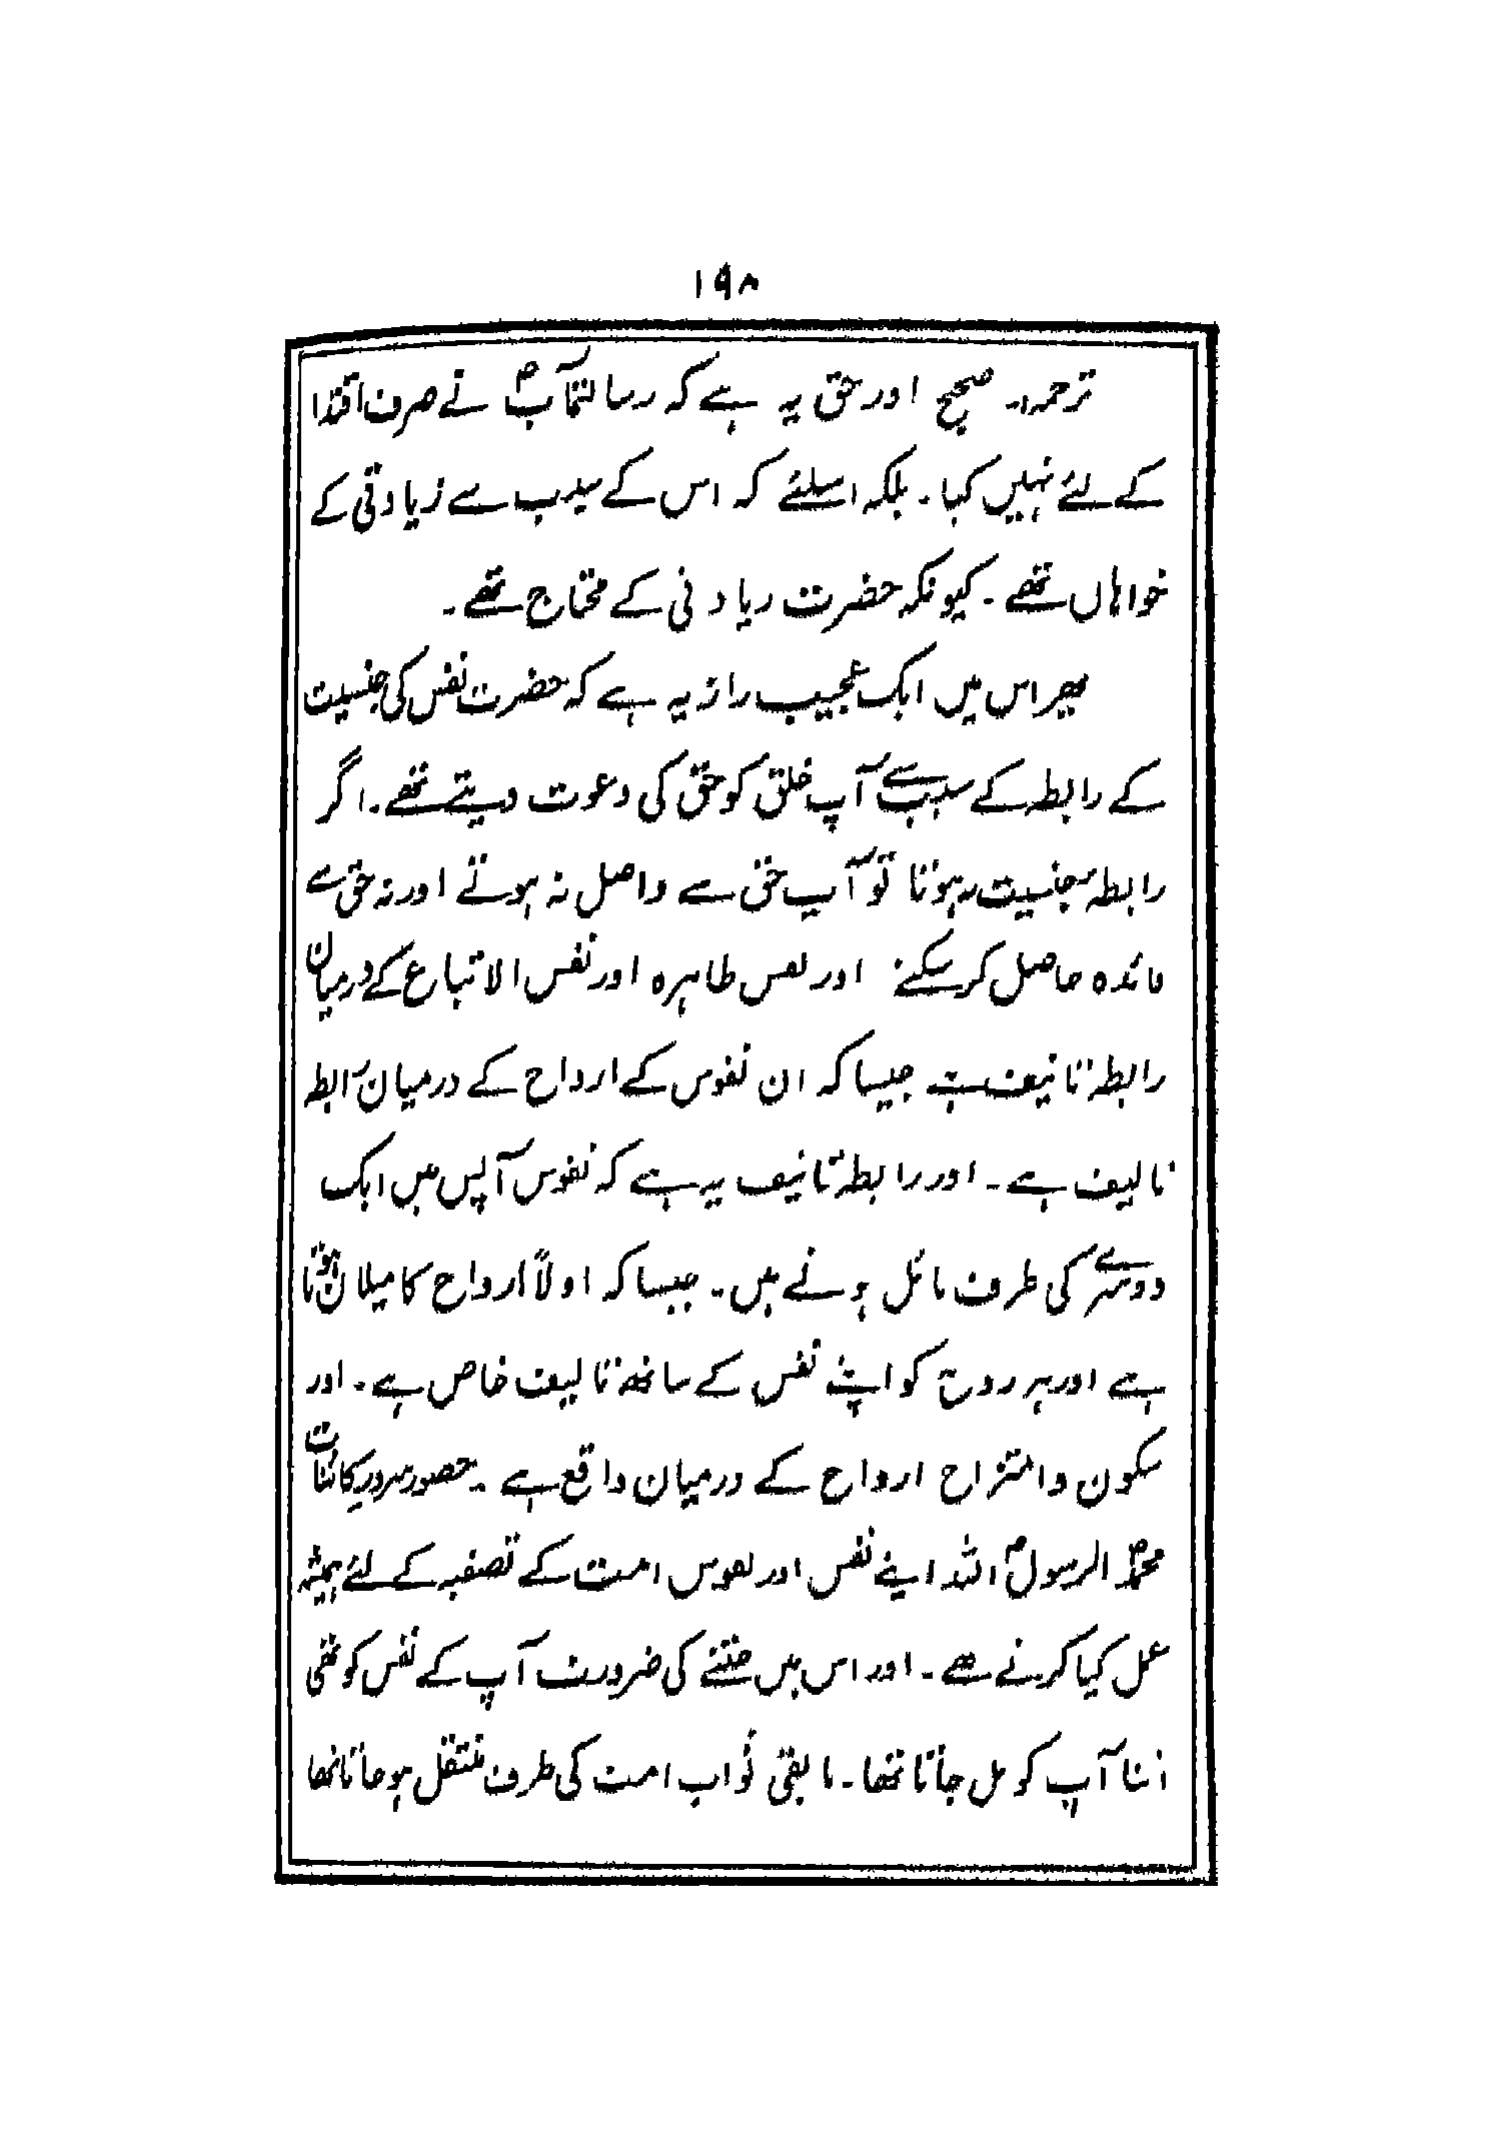 ۱۹۸
ترجمہ۔ صحیح اور حق یہ ہے کہ رسالتمآبؐ نے صرف اقتدا
کے لئے نہیں کیا۔ بلکہ اسلئے کہ اس کے سبب سے زیادتی کے
خواہاں تھے۔ کیونکہ حضرت زیادتی کے محتاج تھے۔
پھر اس میں ایک عجیب راز یہ ہے کہ حضرت نفس کی جنسیت
کے رابطہ کے سبب سے آپ خلق کو حق کی دعوت دیتے تھے۔ اگر
رابطہ جنسیت نہ ہوتا تو آپ حق سے واصل نہ ہوتے اور نہ حق سے
فائدہ حاصل کر سکتے اور نفس طاہرہ اور نفس الاتباع کے درمیان
رابطہ تالیف ہے جیسا کہ ان نفوس کے ارواح کے درمیان رابطہ
تالیف ہے۔ اور رابطہ تالیف یہ ہے کہ نفوس آپس میں ایک
دوسرے کی طرف مائل ہوتے ہیں۔ جیسا کہ اولاً ارواح کا میلان ہوتا
ہے اور ہر روح کو اپنے نفس کے ساتھ تالیف خاص ہے۔ اور
سکون وامتزاج ارواح کے درمیان واقع ہے۔ حضور سرور کائنات
محمدؐ الرسولؐ اللہ اپنے نفس اور نفوس امت کے تصفیہ کے لئے ہمیشہ
عمل کیا کرتے تھے۔ اور اس میں جتنے کی ضرورت آپ کے نفس کو تھی
اتنا آپ کو مل جاتا تھا۔ مابقی ثواب امت کی طرف منتقل ہو جاتا تھا